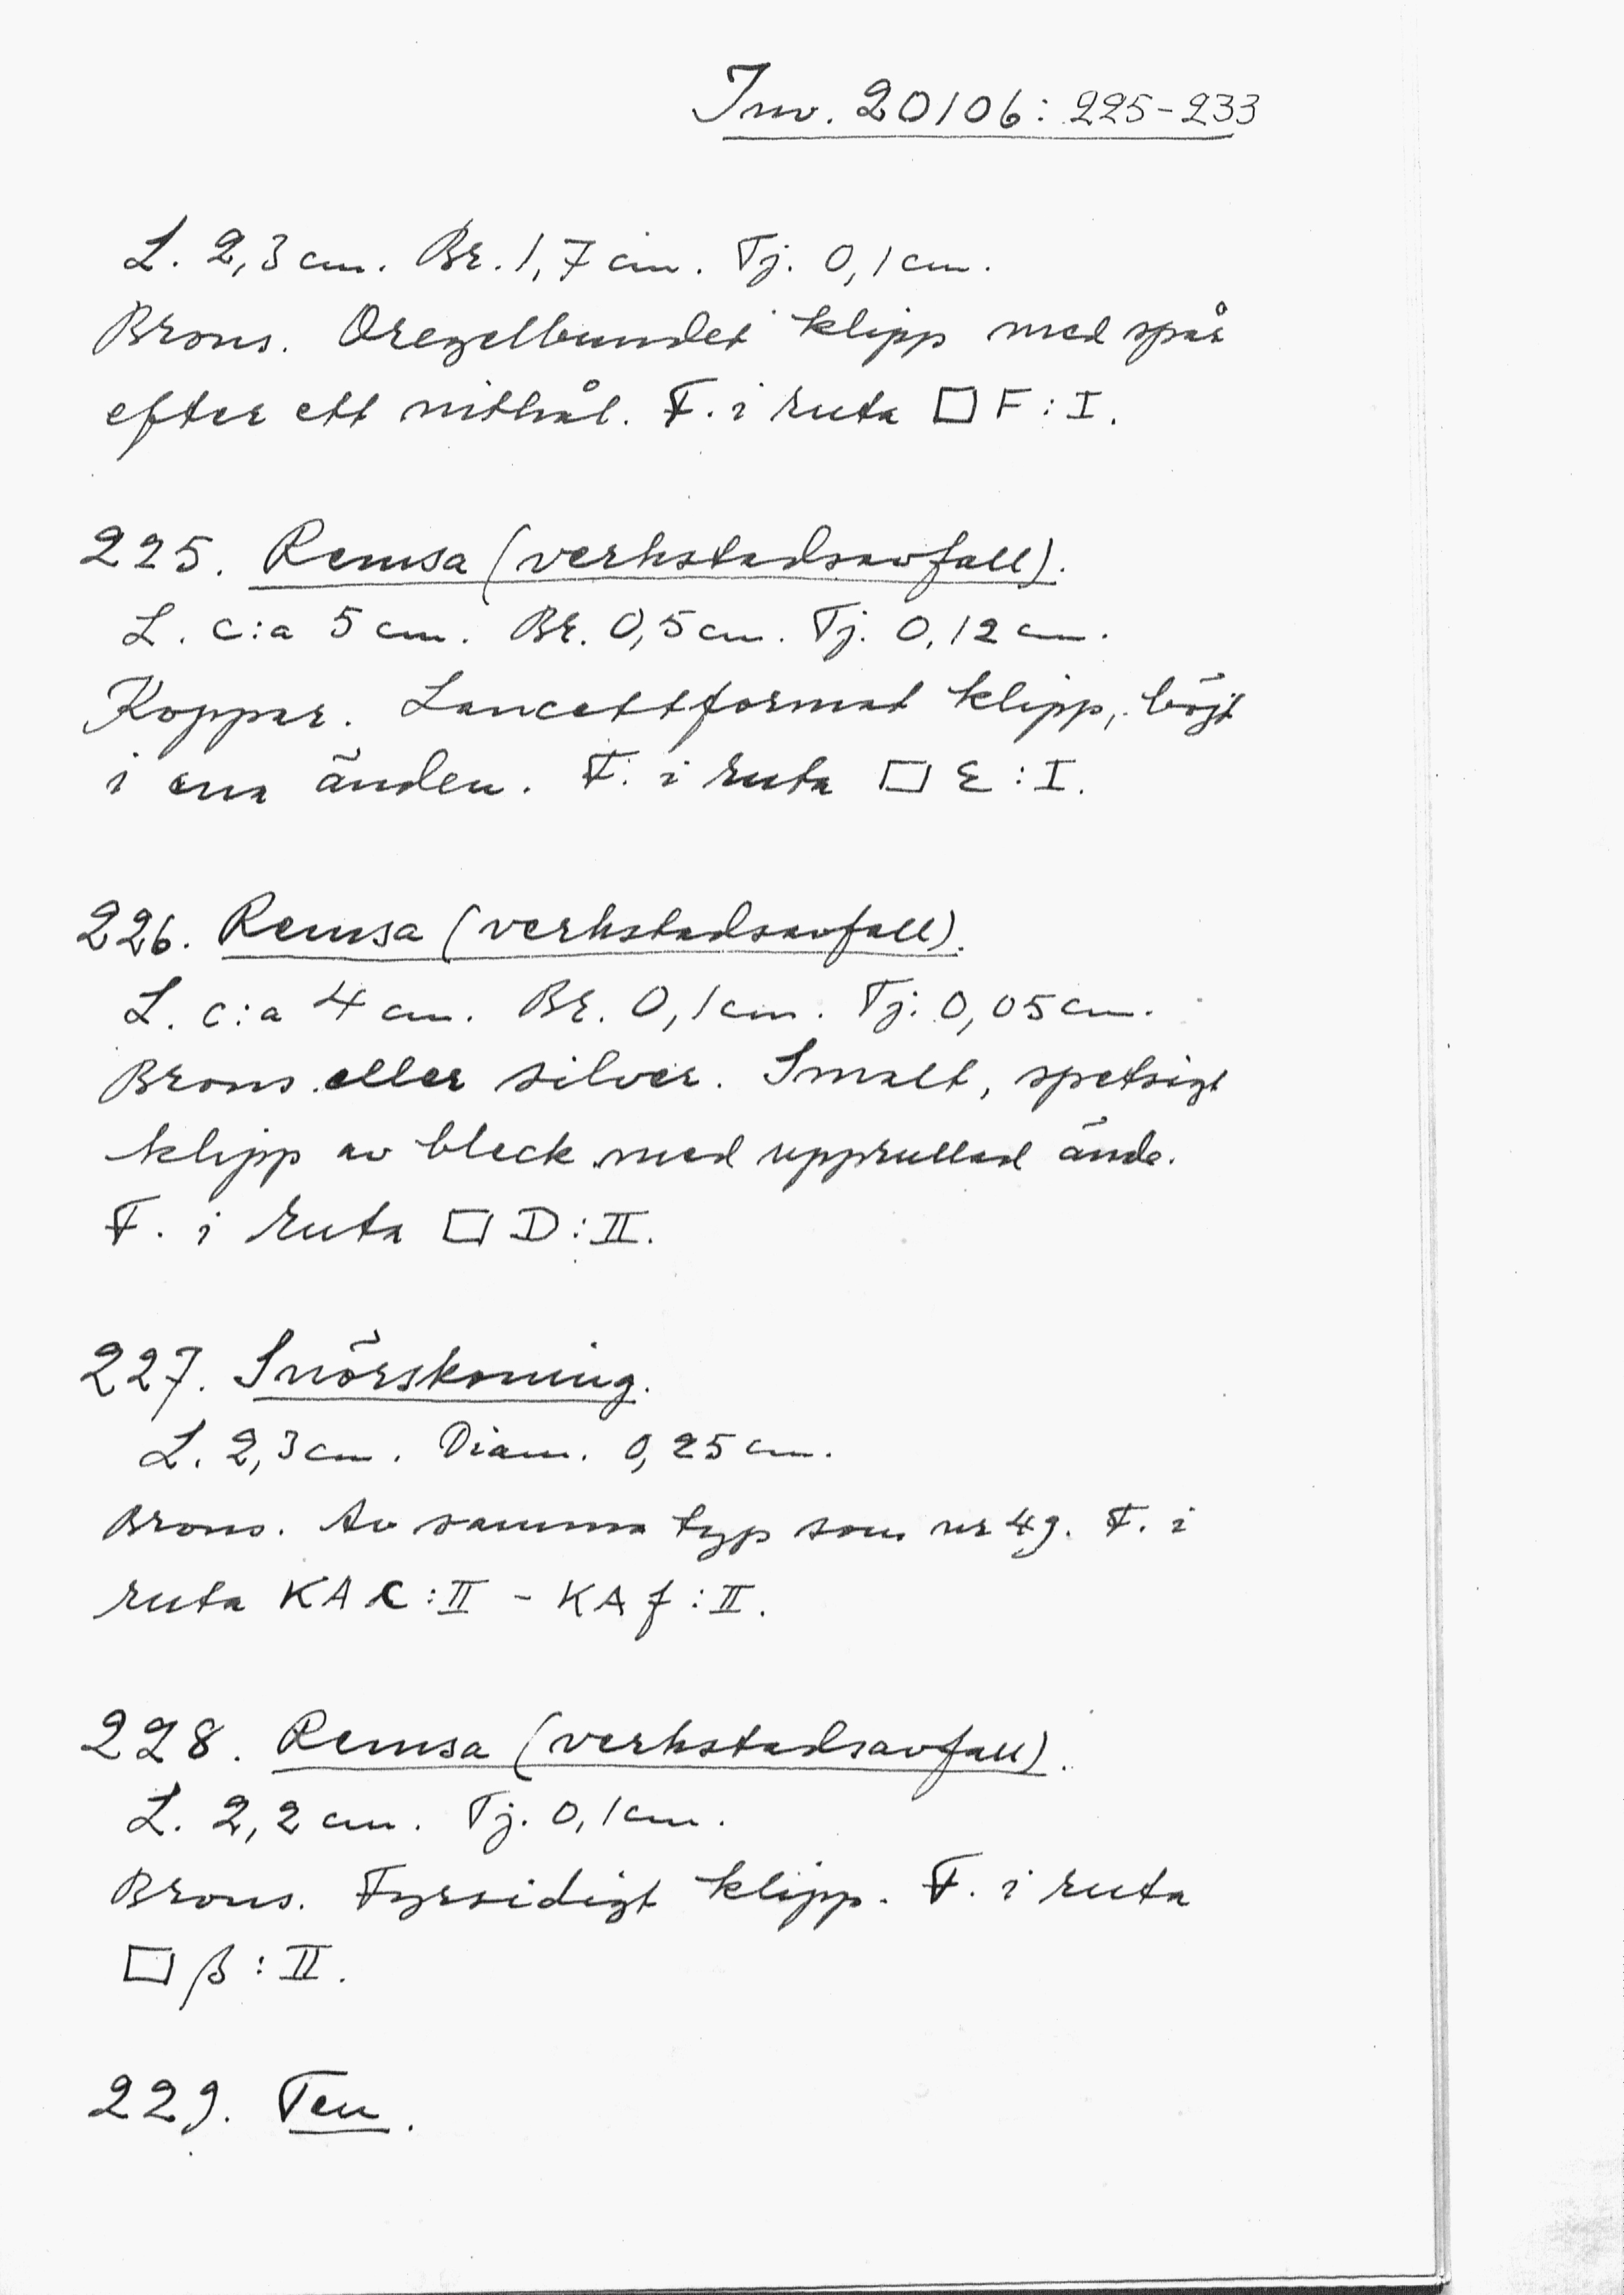 Inv. 20106: 225-233
L. 2,3 cm. Br. 1,7 cm. Tj. 0,1 cm.
Brons. Oregelbundet klipp med spår
efter ett nithål. F. i ruta □ F : I.
225. Remsa (verkstadsavfall).
L. c:a 5 cm. Br. 0,5 cm. Tj. 0,12 cm.
Koppar. Lancettformat klipp, böjt
i ena änden. F. i ruta □ E : I.
226. Remsa (verkstadsavfall).
L. c:a 4 cm. Br. 0,1 cm. Tj. 0,05 cm.
Brons eller silver. Smalt, spetsigt
klipp av bleck med upprullad ände.
F. i ruta □ D : II.
227. Snörskoning.
L. 2,3 cm. Diam. 0,25 cm.
Brons. Av samma typ som nr 49. F. i
ruta KA C : II - KA f : II.
228. Remsa (verkstadsavfall).
L. 2,2 cm. Tj. 0,1 cm.
Brons. Fyrsidigt klipp. F. i ruta
□ β : II.
229. Ten.